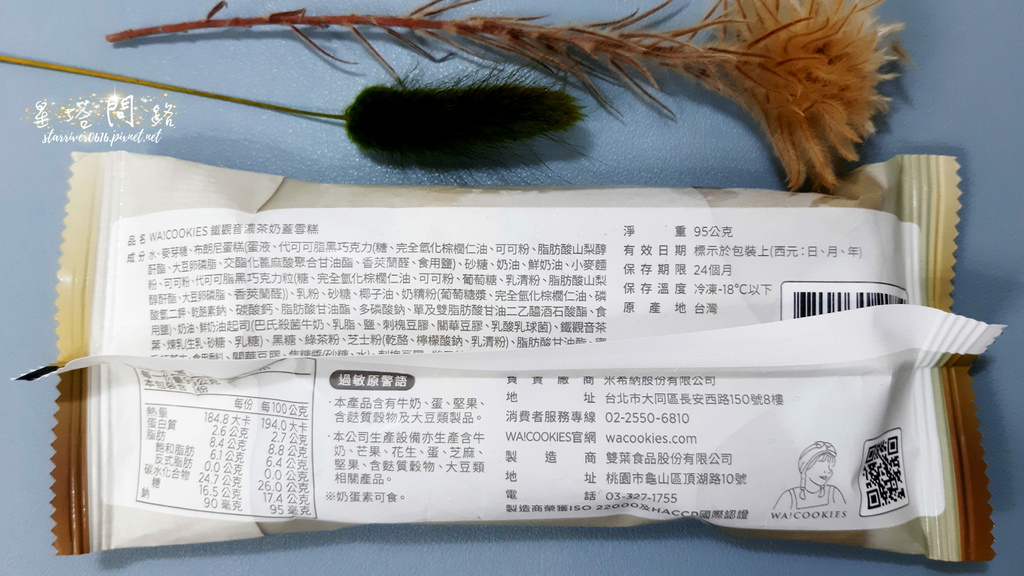 星塔問路
starriver0616.pixnet.net
品名 WA!COOKIES 鐵觀音濃茶奶蓋雪糕
成分 水、麥芽糖、布朗尼蛋糕(蛋液、代可可脂黑巧克力(糖、完全氫化棕櫚仁油、可可粉、脂肪酸山梨醇
酐酯、大豆卵磷脂、交酯化蓖麻酸聚合甘油酯、香莢蘭醛、食用鹽)、砂糖、奶油、鮮奶油、小麥麵
粉、可可粉、代可可脂黑巧克力粒(糖、完全氫化棕櫚仁油、可可粉、葡萄糖、乳清粉、脂肪酸山梨
醇酐酯、大豆卵磷脂、香莢蘭醛))、乳粉、砂糖、椰子油、奶精粉(葡萄糖漿、完全氫化棕櫚仁油、磷
酸氫二鉀、乾酪素鈉、碳酸鈣、脂肪酸甘油酯、多磷酸鈉、單及雙脂肪酸甘油二乙醯酒石酸酯、食
用鹽)、奶油、鮮奶油起司(巴氏殺菌牛奶、乳脂、鹽、刺槐豆膠、關華豆膠、乳酸乳球菌)、鐵觀音茶
葉、煉乳(生乳、砂糖、乳糖)、黑糖、綠茶粉、芝士粉(乾酪、檸檬酸鈉、乳清粉)、脂肪酸甘油酯、
關華豆膠、焦糖漿(砂糖、水)、
淨重 95公克
有效日期 標示於包裝上(西元:日、月、年)
保存期限 24個月
保存溫度 冷凍-18℃以下
原產地 台灣
每份 每100公克
熱量 184.8 大卡 194.0 大卡
蛋白質 2.6 公克 2.7 公克
脂肪 8.4 公克 8.8 公克
飽和脂肪 6.1 公克 6.4 公克
反式脂肪 0.0 公克 0.0 公克
碳水化合物 24.7 公克 26.0 公克
糖 16.5 公克 17.4 公克
鈉 90 毫克 95 毫克
過敏原警語
·本產品含有牛奶、蛋、堅果、
含麩質穀物及大豆類製品。
·本公司生產設備亦生產含牛
奶、芒果、花生、蛋、芝麻、
堅果、含麩質穀物、大豆類
相關產品。
※奶蛋素可食。
負責廠商 米希納股份有限公司
地址 台北市大同區長安西路150號8樓
消費者服務專線 02-2550-6810
WA!COOKIES官網 wacookies.com
製造商 雙葉食品股份有限公司
地址 桃園市龜山區頂湖路10號
電話 03-327-1755
製造商榮獲ISO 22000及HACCP國際認證
WA!COOKIES